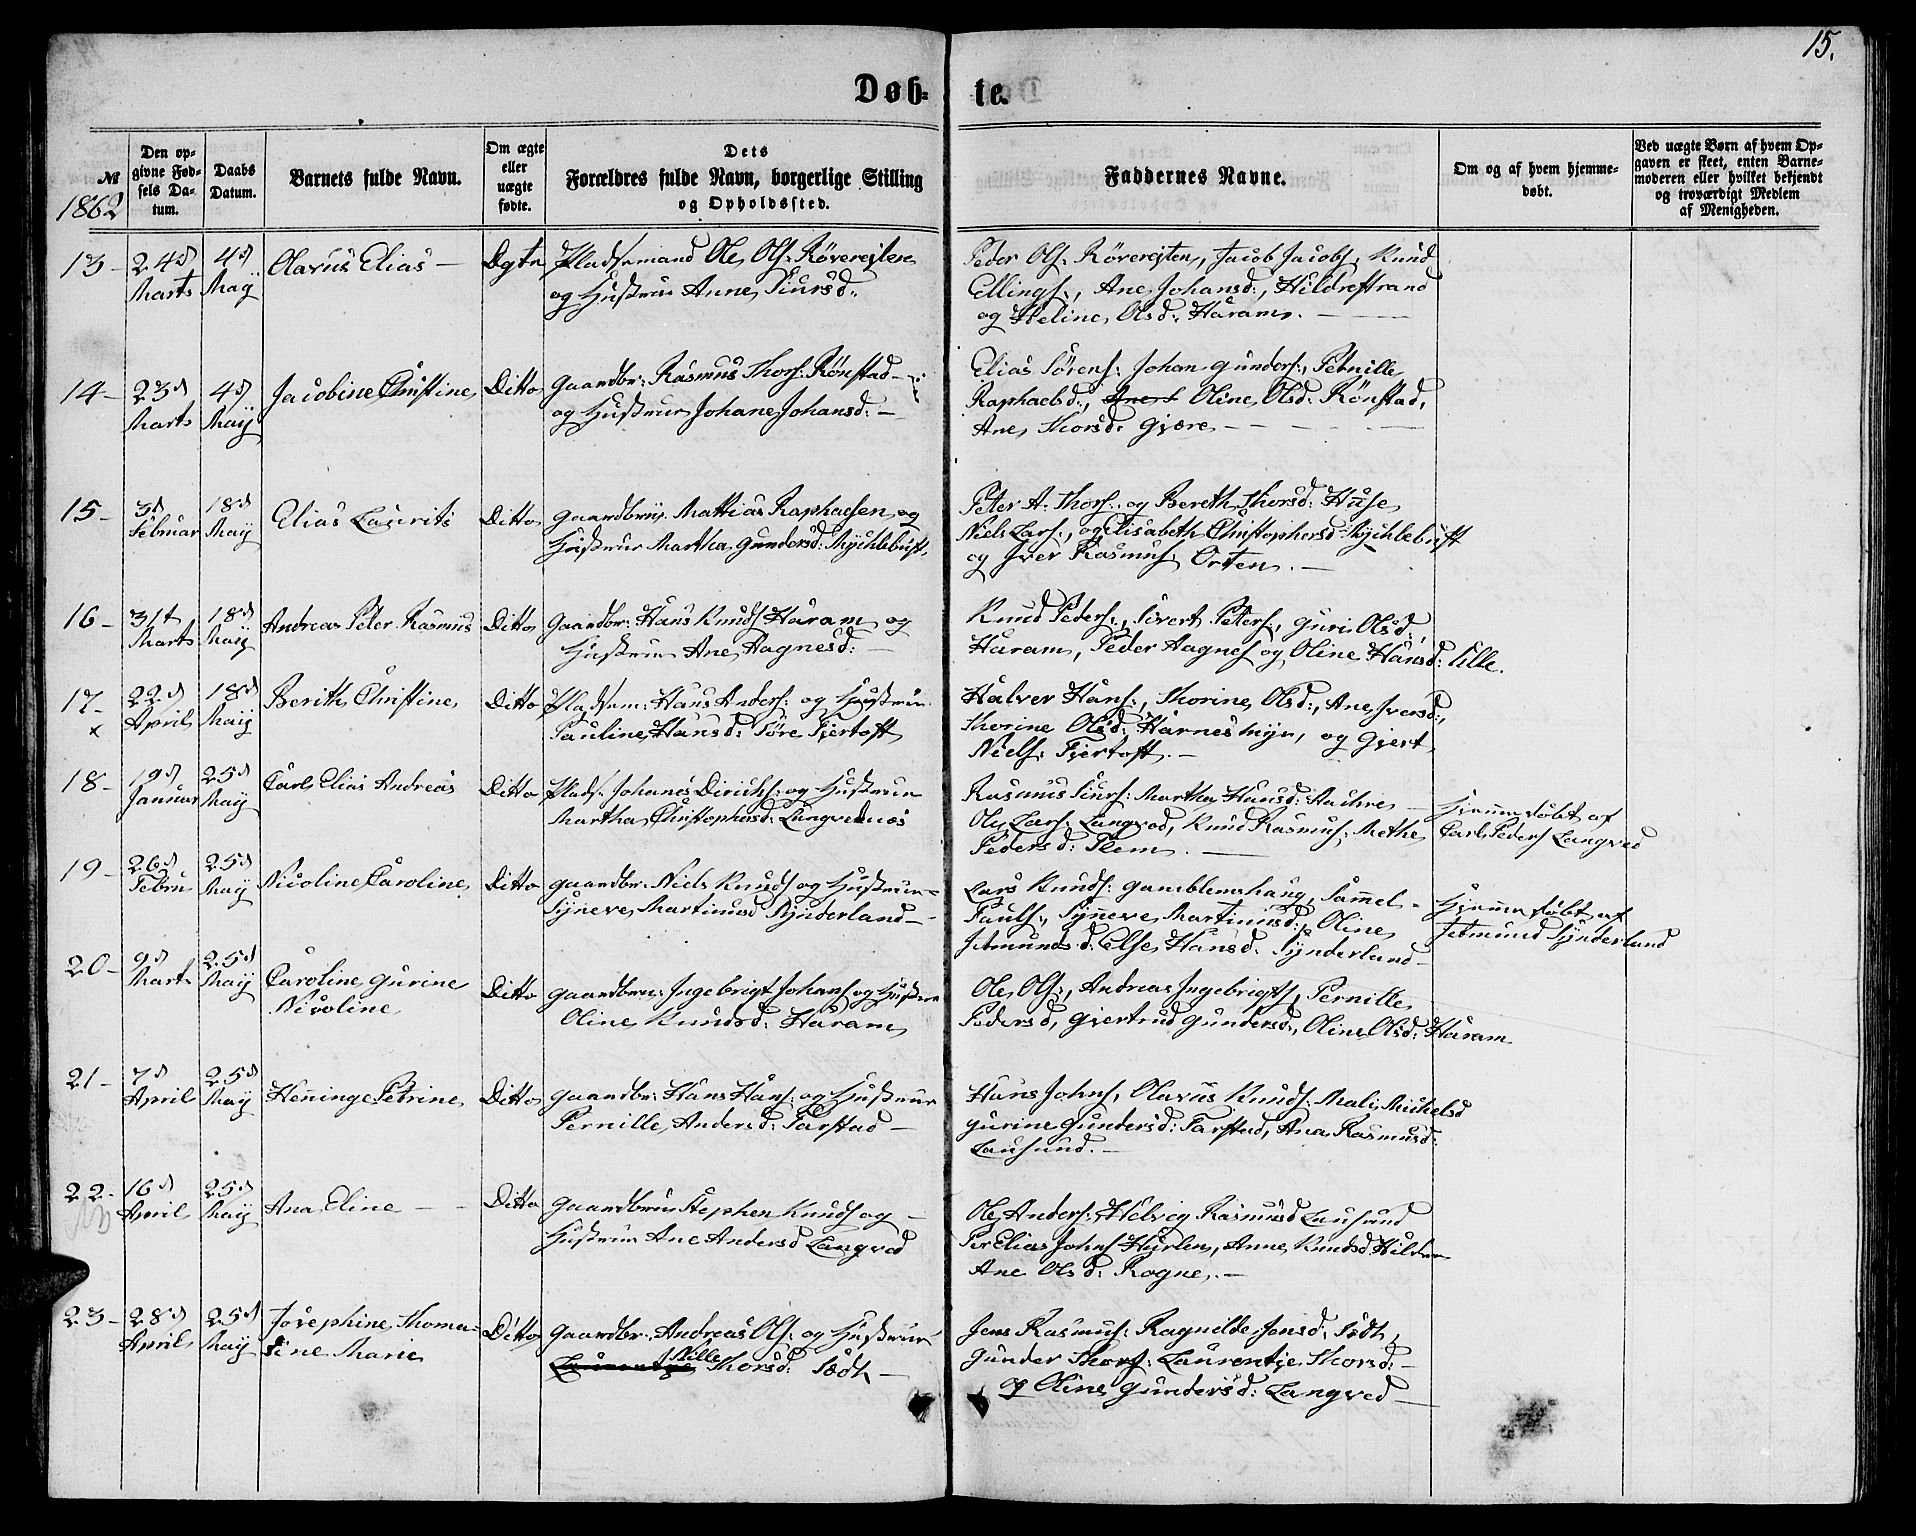 15.
Døb-
te.
№
1862
Den op-
givne Fød-
sels Da-
tum.
Daabs
Datum.
Barnets fulde Navn.
Om ægte
eller
uægte
fødte.
Dets
Forældres fulde Navn, borgerlige Stilling
og Opholdssted.
Faddernes Navne.
Om og af hvem hjemme-
døbt.
Ved uægte Børn af hvem Op-
gaven er skeet, enten Barne-
moderen eller hvilket bekjendt
og troværdigt Medlem
af Menigheden.
13-
24d
Marts
4d
Maij
Olavus Elias -
Ægte
Pladsemand Ole Ols: Røverejten
og Hustrue Anne Siursd:
Peder Ols: Røverejten, Jacob Jacobs, Knud
Ellings:, Ane Johansd:, Hildrestrand
og Heline Olsd: Haram. -
14-
23d
Marts
4d
Maij
Jacobine Christine
Ditto
Gaardbr: Rasmus Thors: Rønstad -
og Hustrue Johane Johansd: -
Elias Sørens: Johan Gunders:, Petnille
Raphaelsd:, Oline Olsd: Rønstad,
Ane Thorsd: Gjære -
15-
3d
Februar
18d
Maij
Elias Laurits
Ditto
Gaardbr: Mattias Raphaelsen og
Hustrue Martha Gundersd: Mychlebust.
Peter A. Thors: og Bereth Thorsd: Huse
Niels Lars:, og Elisabeth Christophersd: Mychlebust
og Iver Rasmus: Orten. -
16-
31t
Marts
18d
Maij
Andreas Peter Rasmus
Ditto
Gaardbr: Hans Knuds Haram og
Hustrue Ane Aagnesd: -
Knud Peders:, Sivert Peters:, Guri Olsd:,
Haram, Peder Aagnes og Oline Hansd: Ulle.
17-
x
22d
April
18d
Maij
Berith Christine
Ditto
Pladsem: Hans Anders: og Hustrue
Pauline Hansd: Søre Fjertoft
Halver Hans:, Thorine Olsd:, Ane Iversd:,
Thorine Olsd: Harnesmyr, og Gjert
Niels: Fjertoft. -
18-
19d
Januar
25d
Maij
Carl Elias Andreas
Ditto
Plads. Johanes Dirichs: og Hustrue
Martha Christophersd: Langvednæs
Rasmus Siurs: Martha Hansd: Aachre
Ole Lars: Langved, Knud Rasmus: Methe
Pedersd: Flem. -
Hjemmedøbt af
Carl Peders Langved
19-
26d
Febru
25d
Maij
Nicoline Caroline
Ditto
Gaardbr: Niels Knuds og Hustrue
Synneve Martinusd Synderland -
Lars Knuds: Gamblemshaug, Samuel
Pauls:, Synneve Martinusd:, Oline
Jetmundsd. Else Hansd: Synderland -
Hjemmedøbt af
Jetmund Synderland
20-
9d
Marts
25d
Maij
Caroline Gurine
Nicoline
Ditto
Gaardbr: Ingebrigt Johans og Hustrue
Oline Knudsd: Haram
Ole Ols:, Andreas Ingebrigts, Pernille
Pedersd, Gjertrud Gundersd:, Oline Olsd: Haram
21-
7d
April
25d
Maij
Henninge Petrine
Ditto
Gaardbr: Hans Hans: og Hustrue
Pernille Andersd: Farstad -
Hans Johns, Olavus Knuds: Mali Michelsd
Gurine Gundersd: Farstad, Ana Rasmusd:
Lausund. -
22-
16d
April
25d
Maij
Ana Eline -
Ditto
Gaardbrue Stephen Knuds og -
Hustrue Ane Andersd Langved
Ole Anders: Helvig Rasmusd Lausund
Per Elias Johns Hurlen, Anne Knudsd Hildre
Ane Olsd: Rogne. -
23-
28d
April
25d
Maij
Josephine Thoma-
sine Marie
Ditto
Gaardbr. Andreas Ols: og Hustrue
Nille
Thorsd: Sædt -
Jens Rasmus: Ragnilde Jensd: Sædt,
Gunder Thors: Laurentje Thorsd: -
og Oline Gundersd: Langved -